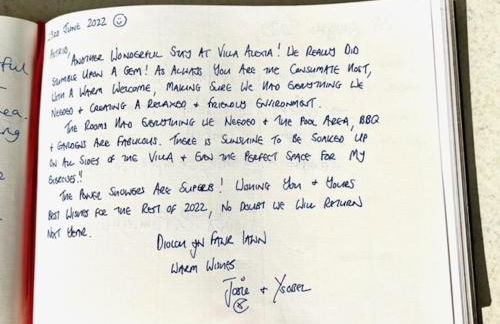 3rd June 2022 ☺
Astrid,
Another Wonderful Stay At Villa Alexia! We Really Did
Stumble Upon A Gem! As Always You Are The Consumate Host,
With A Warm Welcome, Making Sure We Had Everything We
Needed + Creating A Relaxed + Friendly Environment.
The Rooms Had Everything We Needed + The Pool Area, BBQ
+ Gardens Are Fabulous. There Is Sunshine To Be Soaked Up
On All Sides Of The Villa + Even The Perfect Space For My
Exercises!!
The Power Showers Are Superb! Wishing You + Yours
Best Wishes For The Rest Of 2022, No Doubt We Will Return
Next Year.
Diolch yn Fawr Iawn
Warm Wishes
Josie + Ysobel